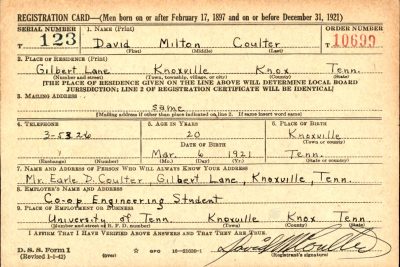 REGISTRATION CARD—(Men born on or after February 17, 1897 and on or before December 31, 1921)
SERIAL NUMBER 1. NAME (Print) ORDER NUMBER
T 123 David Milton Coulter 10699
(First) (Middle) (Last)
2. PLACE OF RESIDENCE (Print)
Gilbert Lane Knoxville Knox Tenn.
(Number and street) (Town, township, village, or city) (County) (State)
[THE PLACE OF RESIDENCE GIVEN ON THE LINE ABOVE WILL DETERMINE LOCAL BOARD
JURISDICTION; LINE 2 OF REGISTRATION CERTIFICATE WILL BE IDENTICAL]
3. MAILING ADDRESS
same
[Mailing address if other than place indicated on line 2. If same insert word same]
4. TELEPHONE 5. AGE IN YEARS 6. PLACE OF BIRTH
3-5326 20 Knoxville
DATE OF BIRTH (Town or county)
Mar. 6 1921 Tenn.
(Exchange) (Number) (Mo.) (Day) (Yr.) (State or country)
7. NAME AND ADDRESS OF PERSON WHO WILL ALWAYS KNOW YOUR ADDRESS
Mr. Earle D. Coulter, Gilbert Lane, Knoxville, Tenn.
8. EMPLOYER'S NAME AND ADDRESS
Co-op Engineering Student
9. PLACE OF EMPLOYMENT OR BUSINESS
University of Tenn. Knoxville Knox Tenn.
(Number and street or R. F. D. number) (Town) (County) (State)
I AFFIRM THAT I HAVE VERIFIED ABOVE ANSWERS AND THAT THEY ARE TRUE.
D. S. S. Form 1 GPO David M Coulter
(Revised 1-1-42) (Registrant's signature)